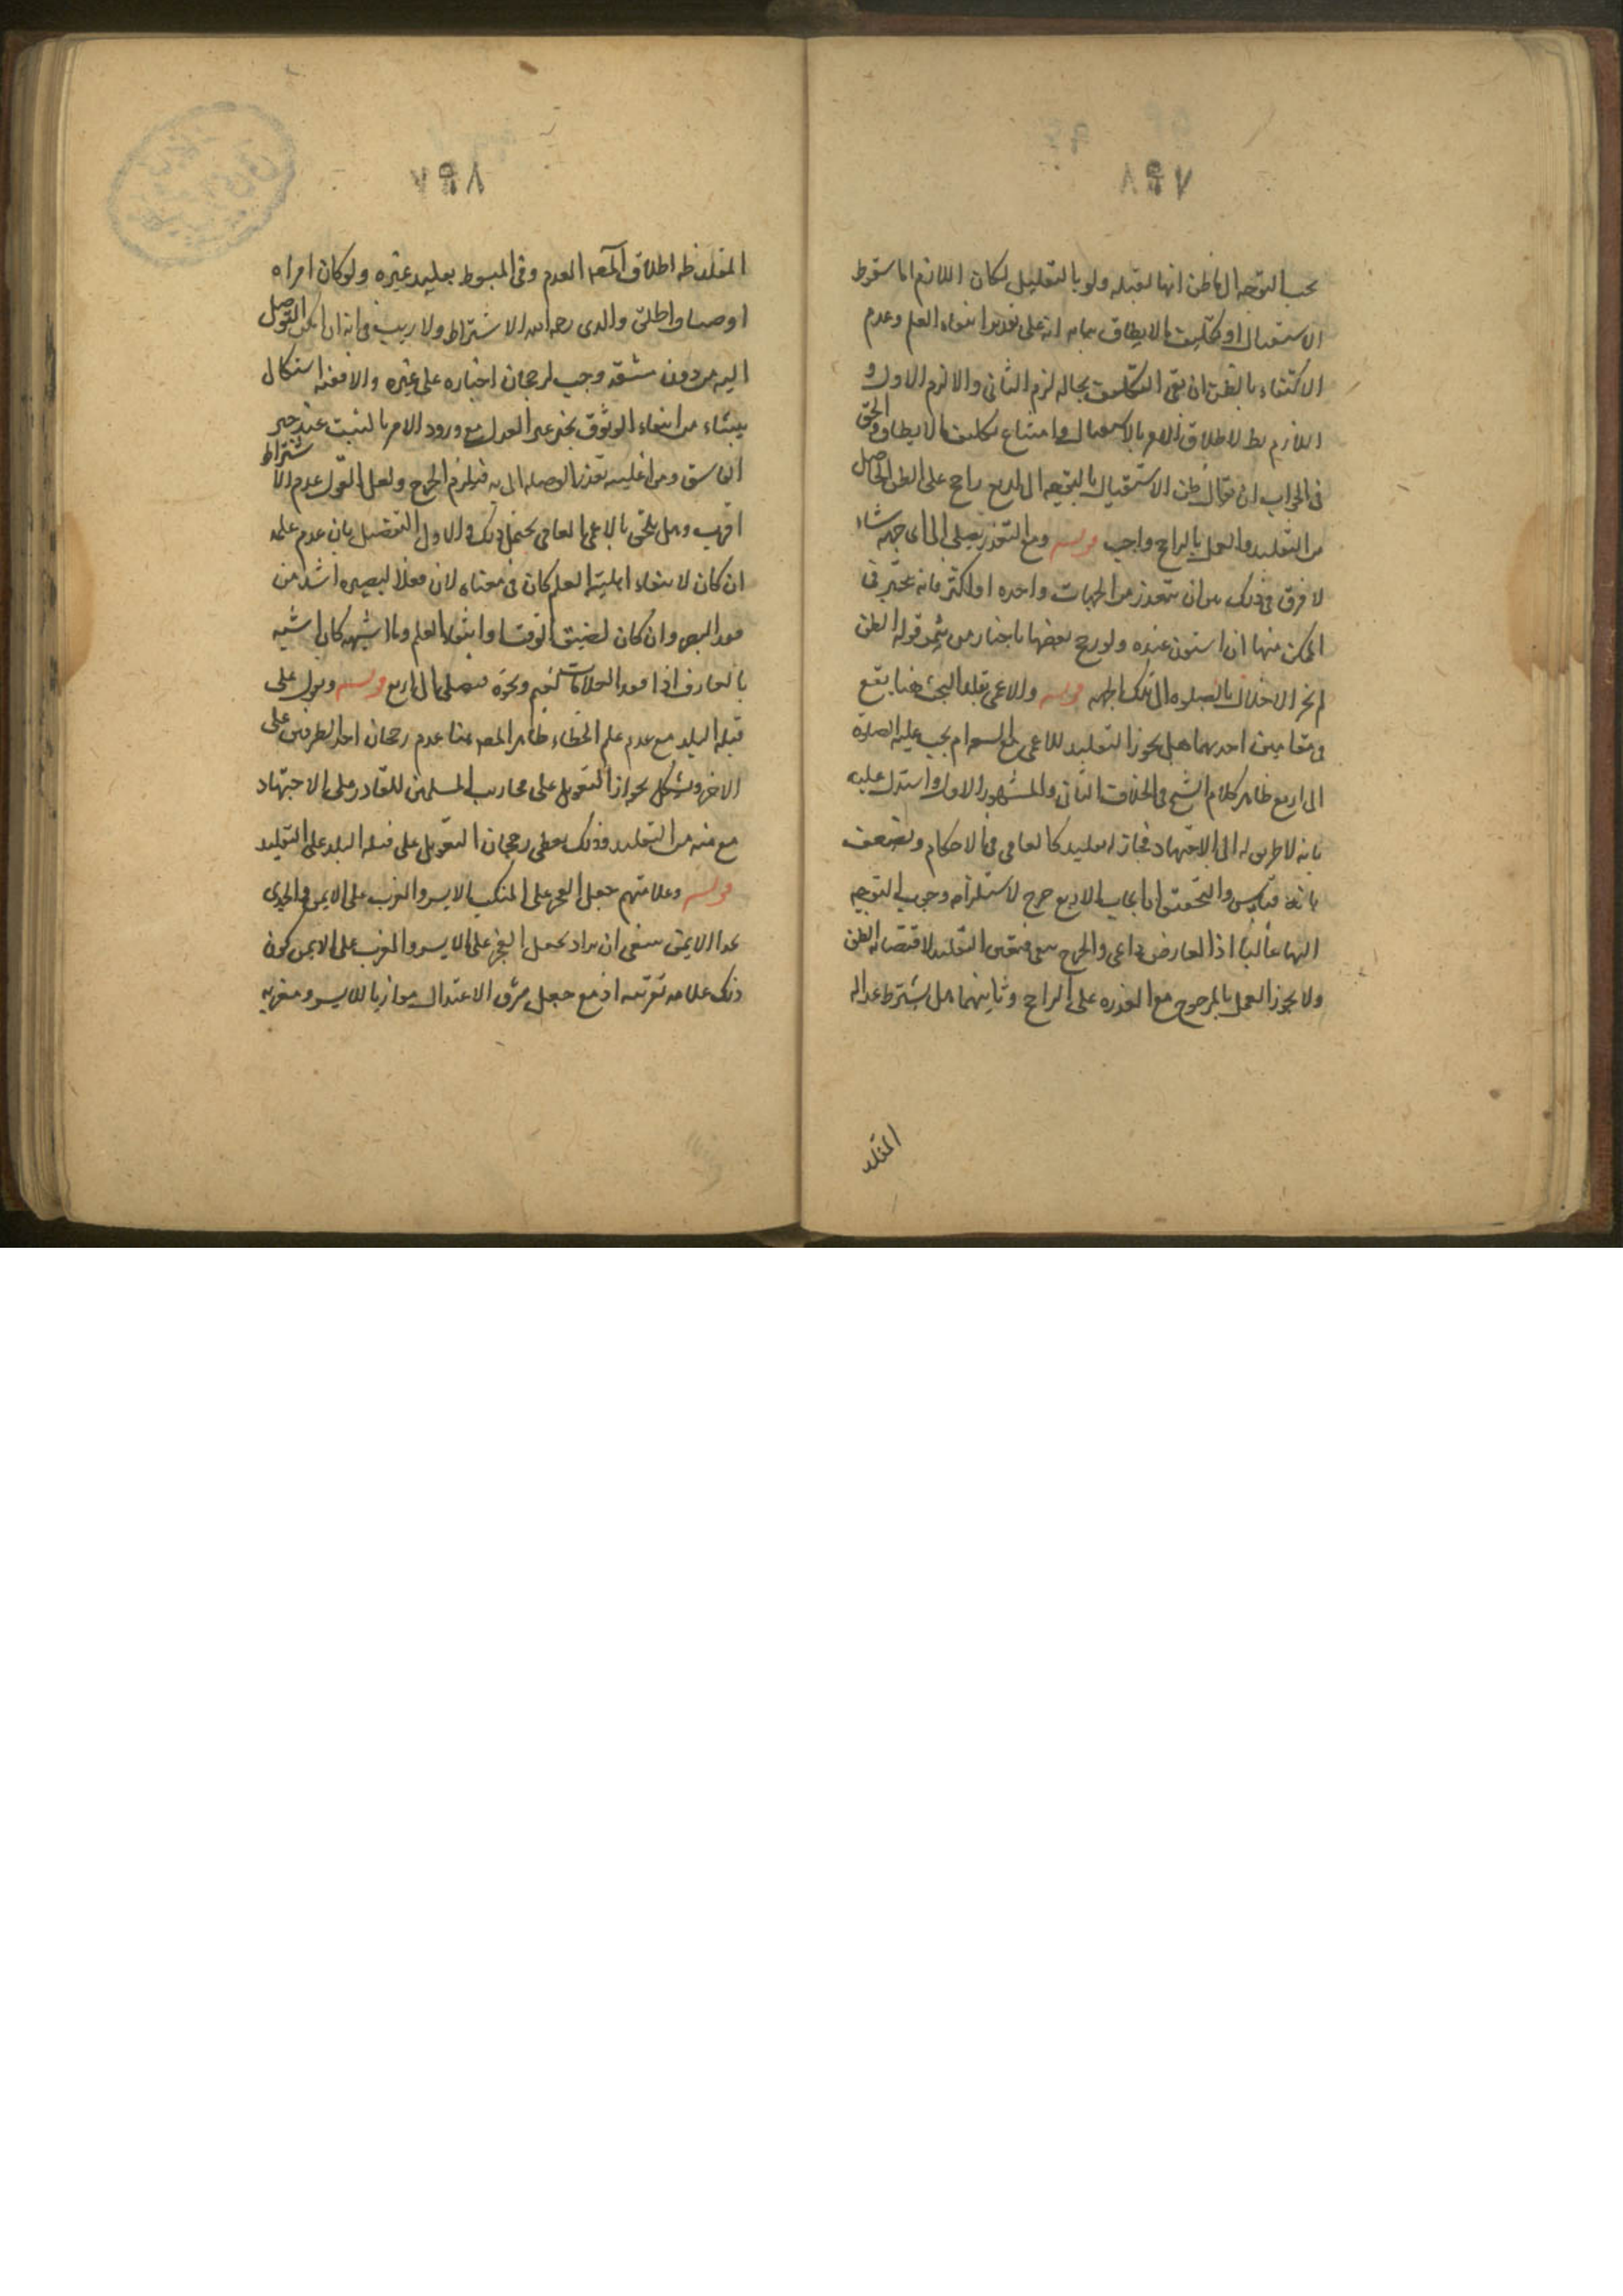 ٧٩٨
يجب التوجه الى ما ظن انها القبله ولو بالتقليد لكان اللازم اما سقوط
الاستقبال او تكليف مالا يطاق بيانه انه على تقدير انتفاء العلم وعدم
الاكتفاء بالظن ان بقى التكليف بحاله لزم الثانى والا لزم الاول و
اللازم بط لاطلاق الامر بالاستقبال وامتناع تكليف مالا يطاق والحق
فى الجواب ان يقال ظن الاستقبال بالتوجه الى اربع راجح على الظن الحاصل
من التقليد والعمل بالراجح واجب قوله ومع التعذر يصلى الى اى جهة شاء
لا فرق فى ذلك بين ان يتعذر من الجهات واحده او اكثر فانه يتخير فى
الممكن منها ان استوت عنده ولو رجح بعضها باخبار من يثمر قوله الظن
لم يجز الاخلال بالصلوه الى تلك الجهه قوله والاعمى يقلد البحث هنا يقع
فى مقامين احدهما هل يجوز التقليد للاعمى مع السعه ام يجب عليه الصلوة
الى اربع ظاهر كلام الشيخ فى الخلاف الثانى والمشهور الاول واستدل عليه
بانه لا طريق له الى الاجتهاد فجاز له تقليد كالعامى فى الاحكام ويضعف
بانه قياس والتحقيق ان ايجاب الاربع حرج لاستلزامه وجوب التوجه
اليها غالبا اذ العارض داعى والحرج منفى فتعين التقليد لاقتضائه الظن
ولا يجوز العمل بالمرجوح مع القدره على الراجح وثانيهما هل يشترط عداله
المقلد
٧٩٨
المقلد ظ اطلاق المصـ العدم وفى المبسوط تقليد غيره ولو كان امراه
او صبيا واطلق والدى رحمه الله الاشتراط ولا ريب فى انه ان امكن التوصل
اليه من دون مشقه وجب لرجحان اخباره على غيره والا ففيه اشكال
ينشاء من انتفاء الوثوق بخبر غير العدل مع ورود الامر بالتثبت عند خبر
الفاسق ومن اغلبيه تعذر الوصله اليه فيلزم الحرج ولعل القول بعدم الاشتراط
اقرب وهل يلحق بالاعمى العامى يحتمل ذلك والاول التفصيل بان عدم علمه
ان كان لانتفاء اهليته العلم كان فى معناه لان فقد البصيره اشد من
فقد البصر وان كان لضيق الوقت او انتفاء العلم وما اشبهه كان اشبه
بالعارف اذا فقد العلامات لغيم ونحوه فيصلى الى اربع قوله ويعول على
قبله البلد مع عدم علم الخطاء ظاهر المصـ هنا عدم رجحان احد الطرفين على
الاخر ويشكل بجواز التعويل على محاريب المسلمين للقادر على الاجتهاد
مع منعه من التقليد وذلك يعطى رجحان التعويل على قبله البلد على التقليد
قوله وعلامتهم جعل الفجر على المنكب الايسر والغرب على الايمن والجدى
بحذا الايمن ينبغى ان يراد بجعل الفجر على الايسر والمغرب على الايمن كون
ذلك علامه تقريبيه اذ مع جعل مشرق الاعتدال موازيا للايسر ومغربه